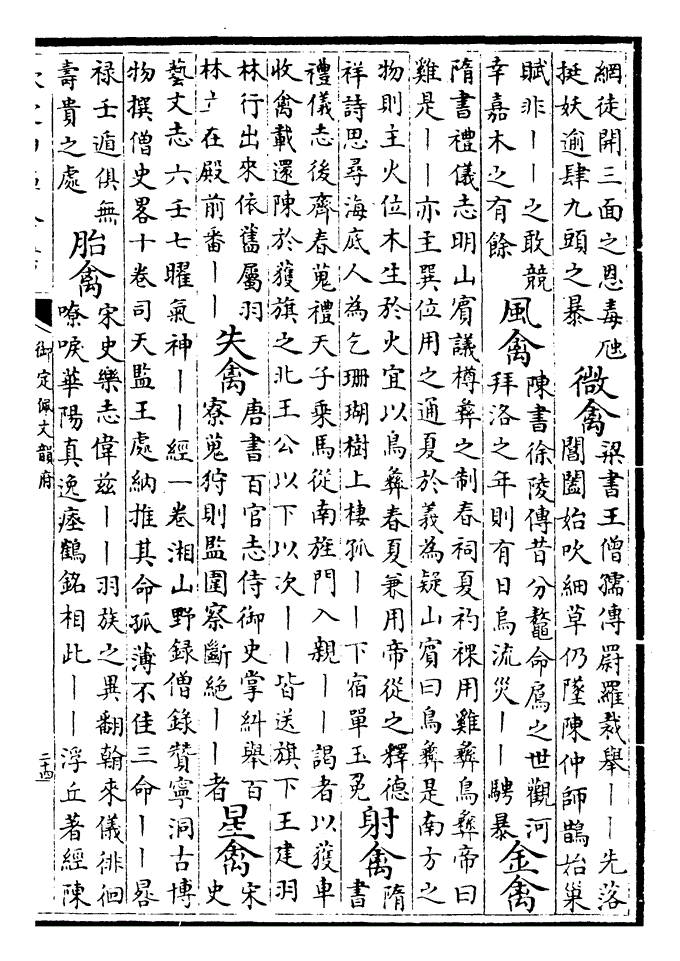 網徒開三面之恩毒虺
挺妖逾肆九頭之暴
微禽
梁書王僧孺傳罻羅裁舉——先落
閶闔始吹細草仍墜陳仲師鵲始巢
賦非——之敢競
幸嘉木之有餘
風禽
陳書徐陵傳昔分鼇命屬之世觀河
拜洛之年則有日烏流災——騁暴
金禽
隋書禮儀志明山賓議樽彝之制春祠夏礿祼用雞彝鳥彝帝曰
雞是——亦主巽位用之通夏於義為疑山賓曰鳥彝是南方之
物則主火位木生於火宜以鳥彝春夏兼用帝從之釋德
祥詩思尋海底人為乞珊瑚樹上棲孤——下宿單玉兎
射禽
隋
書
禮儀志後齊春蒐禮天子乘馬從南旌門入親——謁者以獲車
收禽載還陳於獲旗之北王公以下以次——皆送旗下王建羽
林行出來依舊屬羽
林立在殿前番——
失禽
唐書百官志侍御史掌糾舉百
寮蒐狩則監圍察斷絕——者
星禽
宋
史
藝文志六壬七曜氣神——經一卷湘山野録僧録贊寧洞古博
物撰僧史畧十卷司天監王處納推其命孤薄不佳三命——晷
禄壬遁俱無
壽貴之處
胎禽
宋史樂志偉兹——羽族之異翻翰來儀徘徊
嘹唳華陽真逸瘞鶴銘相此——浮丘著經陳
御定佩文韻府
二十四